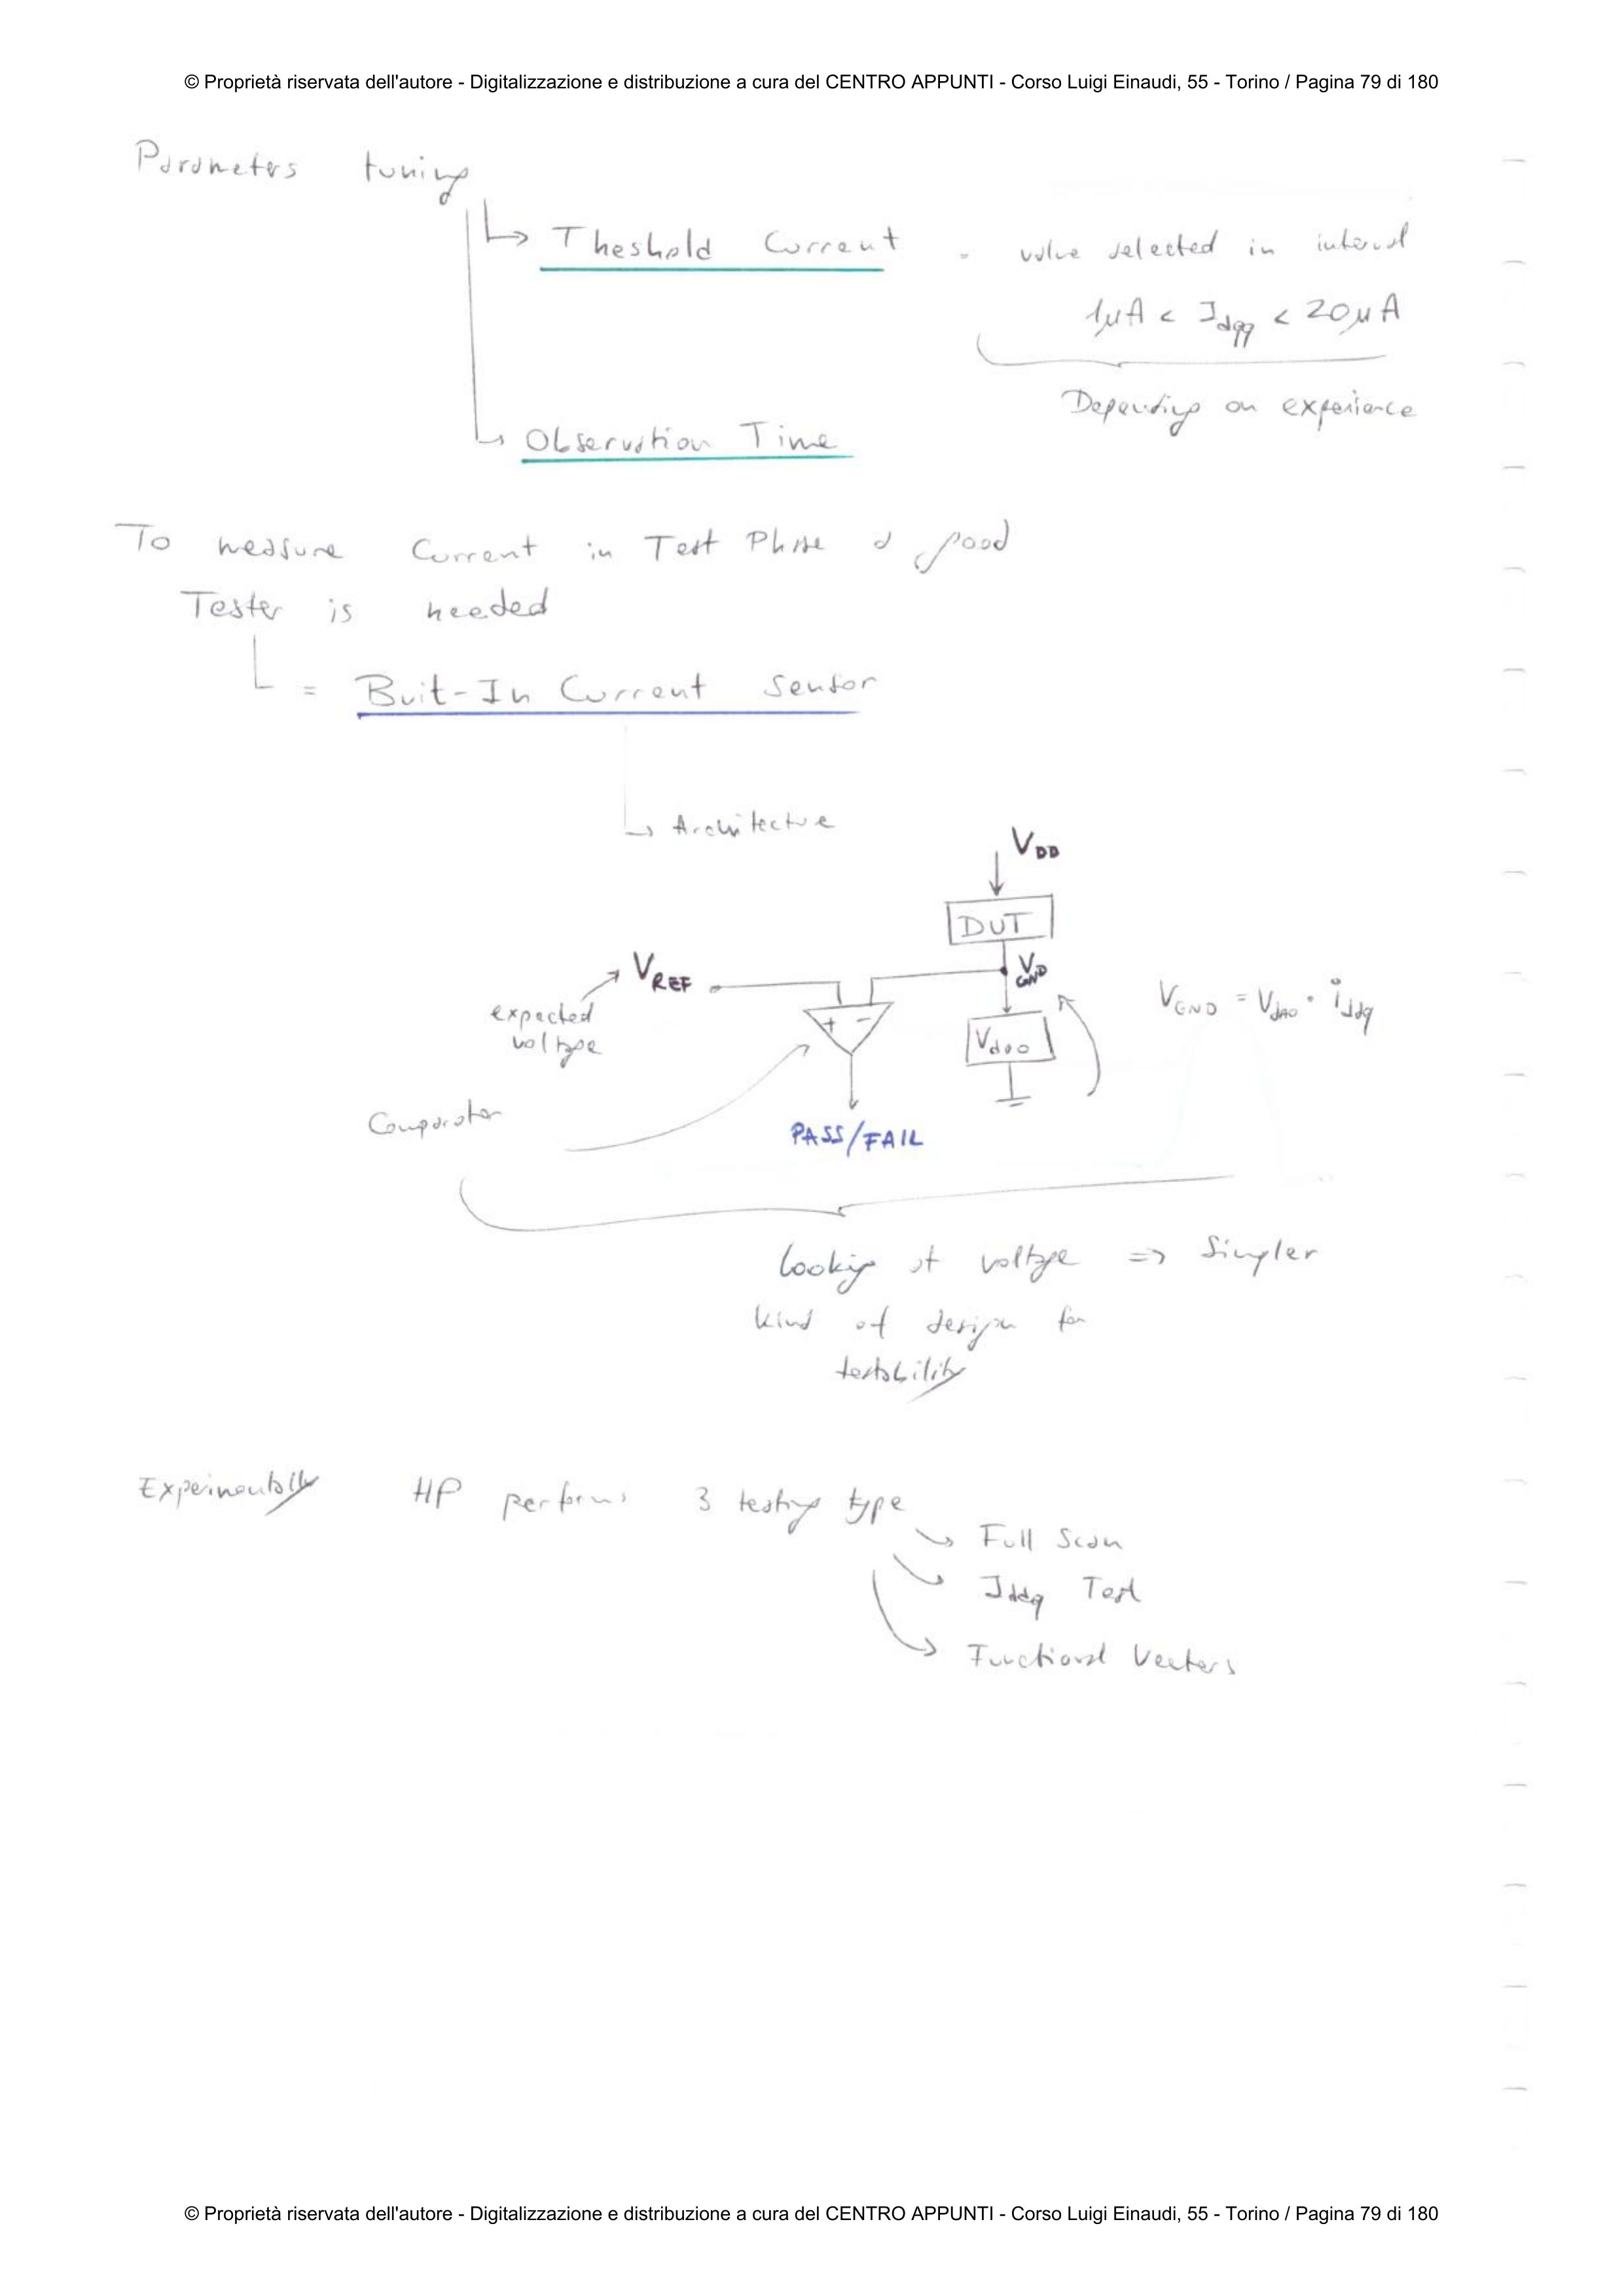 © Proprietà riservata dell'autore - Digitalizzazione e distribuzione a cura del CENTRO APPUNTI - Corso Luigi Einaudi, 55 - Torino / Pagina 79 di 180
Parameters tuning
Theshold Current - value selected in interval
1μA < Idqq < 20μA
Depending on experience
Observation Time
To measure Current in Test Phase a good
Tester is needed
= Buit-In Current Sensor
Architecture
VDD
DUT
VREF
VGND
expected
voltage
VGND = · iddq
Comparator
+ -
PASS/FAIL
Looking at voltage => Simpler
kind of design for
testability
Experimentally HP performs 3 testing type
Full Scan
Iddq Test
Functional Vectors
© Proprietà riservata dell'autore - Digitalizzazione e distribuzione a cura del CENTRO APPUNTI - Corso Luigi Einaudi, 55 - Torino / Pagina 79 di 180